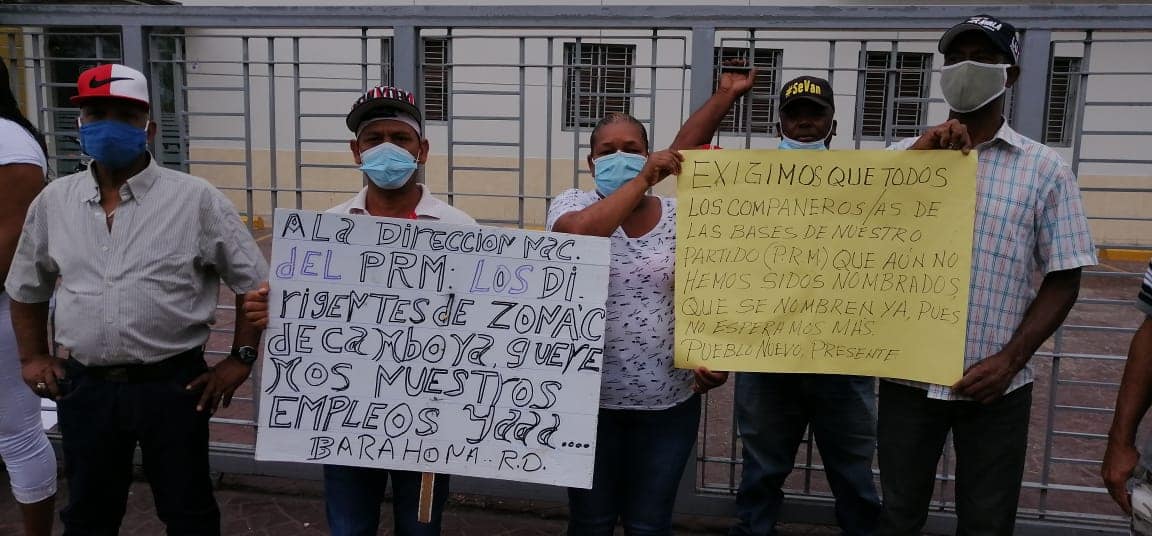 #SeVan
A La DIRECCION NAC.
dEL PRM: LOS DI.
RIGENTES dE ZONA'C
de CAMBOYA, QUEREMOS
NUESTROS
EMPLEOS Yaaa....
BARAHONA.. R.D.
EXIGIMOS QUE TODOS
LOS COMPAÑEROS/AS DE
LAS BASES DE NUESTRO
PARTIDO (PRM) QUE AÚN NO
HEMOS SIDOS NOMBRADOS,
QUE SE NOMBREN YA, PUES
NO ESPERAMOS MÁS
PUEBLO NUEVO, PRESENTE